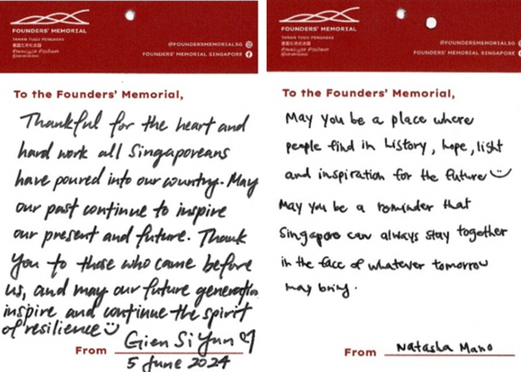 FOUNDERS' MEMORIAL
TAMAN TUGU PENGASAS
@FOUNDERSMEMORIALSG
FOUNDERS' MEMORIAL SINGAPORE
To the Founders' Memorial,
Thankful for the heart and
hard work all Singaporeans
have poured into our country. May
our past continue to inspire
our present and future. Thank
you to those who came before
us, and may our future generation
inspire and continue the spirit
of resilience
From Gien Si Yun
5 June 2024
FOUNDERS' MEMORIAL
TAMAN TUGU PENGASAS
@FOUNDERSMEMORIALSG
FOUNDERS' MEMORIAL SINGAPORE
To the Founders' Memorial,
May you be a place where
people find in history, hope, light
and inspiration for the future
May you be a reminder that
Singapore can always stay together
in the face of whatever tomorrow
may bring.
From Natasha Mano